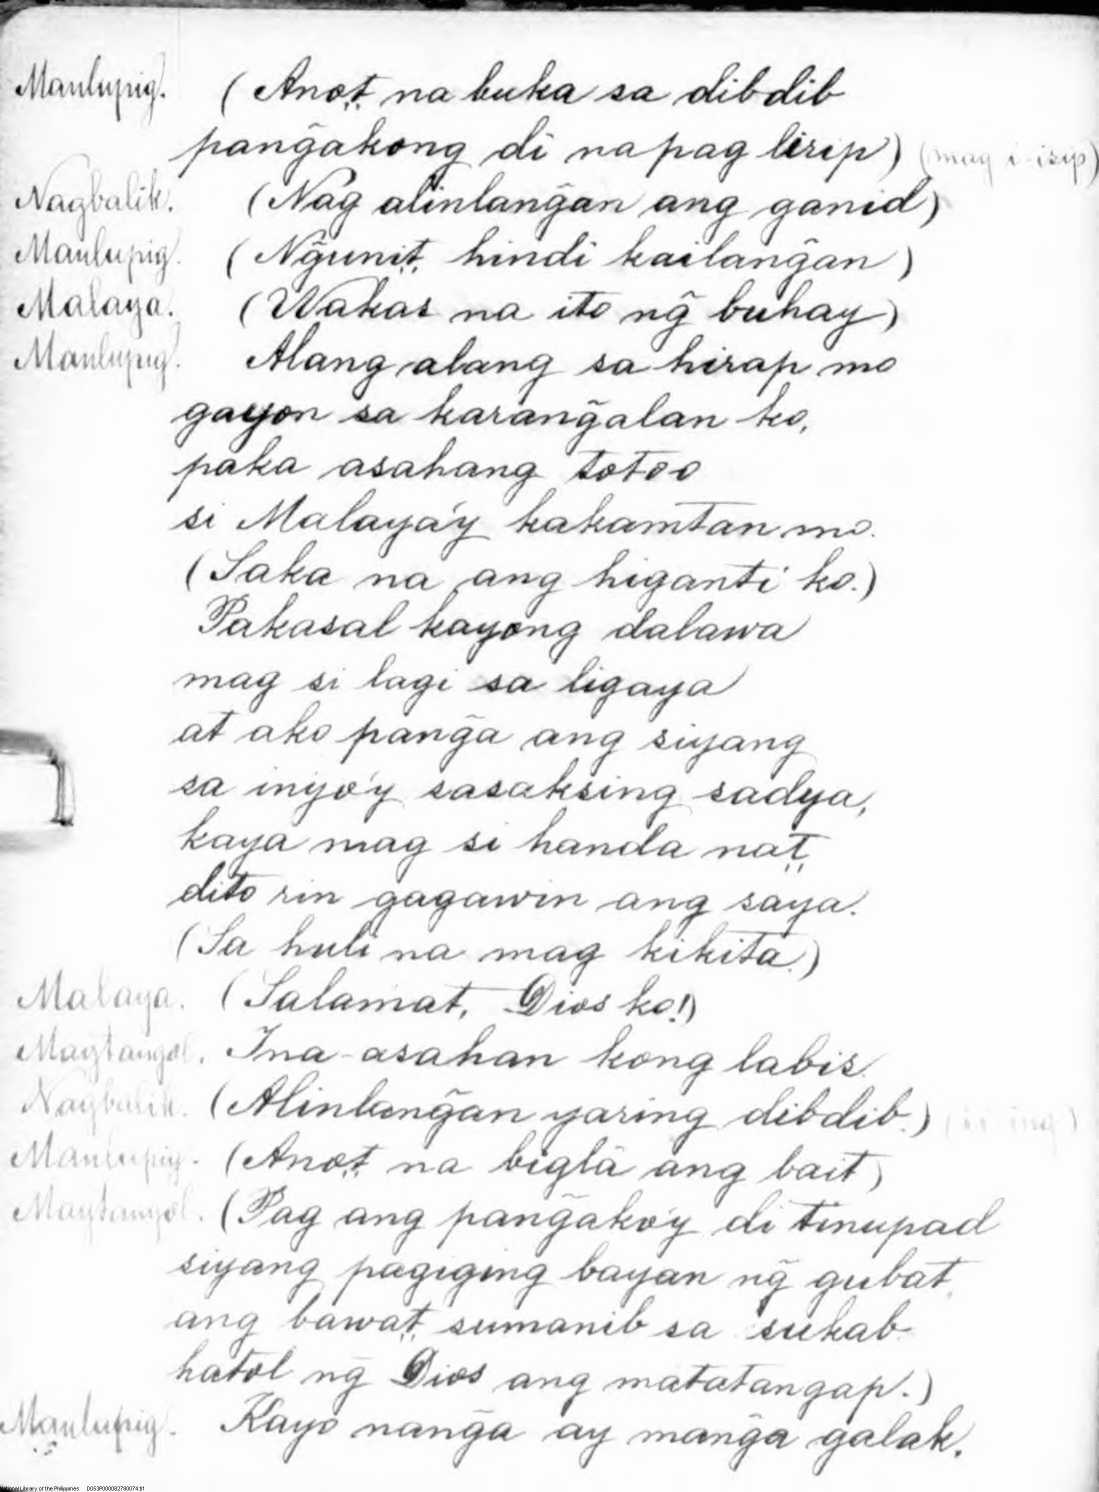 Manlupig. (Anot na buka sa dibdib
pang̃akong di na pag lirip) (mag i-isip)
Nagbalik. (Nag alinlang̃an ang ganid)
Manlupig. (Ng̃unit, hindi kailang̃an)
Malaya. (Wakas na ito ng̃ buhay)
Manlupig. Alang alang sa hirap mo
gayon sa karang̃alan ko,
paka asahang totoo
si Malaya'y kakamtan mo.
(Saka na ang higanti ko.)
Pakasal kayong dalawa
mag si lagi sa ligaya
at ako pang̃a ang siyang
sa inyo'y sasaksing sadya,
kaya mag si handa nat
dito rin gagawin ang saya.
(Sa huli na mag kikita.)
Malaya. (Salamat, Dios ko!)
Magtangol. Ina-asahan kong labis.
Nagbalik. (Alinlang̃an yaring dibdib.)
Manlupig. (Anot na biglâ ang bait)
Magtangol. (Pag ang pang̃ako'y di tinupad
siyang pagiging bayan ng̃ gubat,
ang bawat, sumanib sa sukab
hatol ng̃ Dios ang matatangap.)
Manlupig. Kayo nang̃a ay mang̃a galak.
National Library of the Philippines